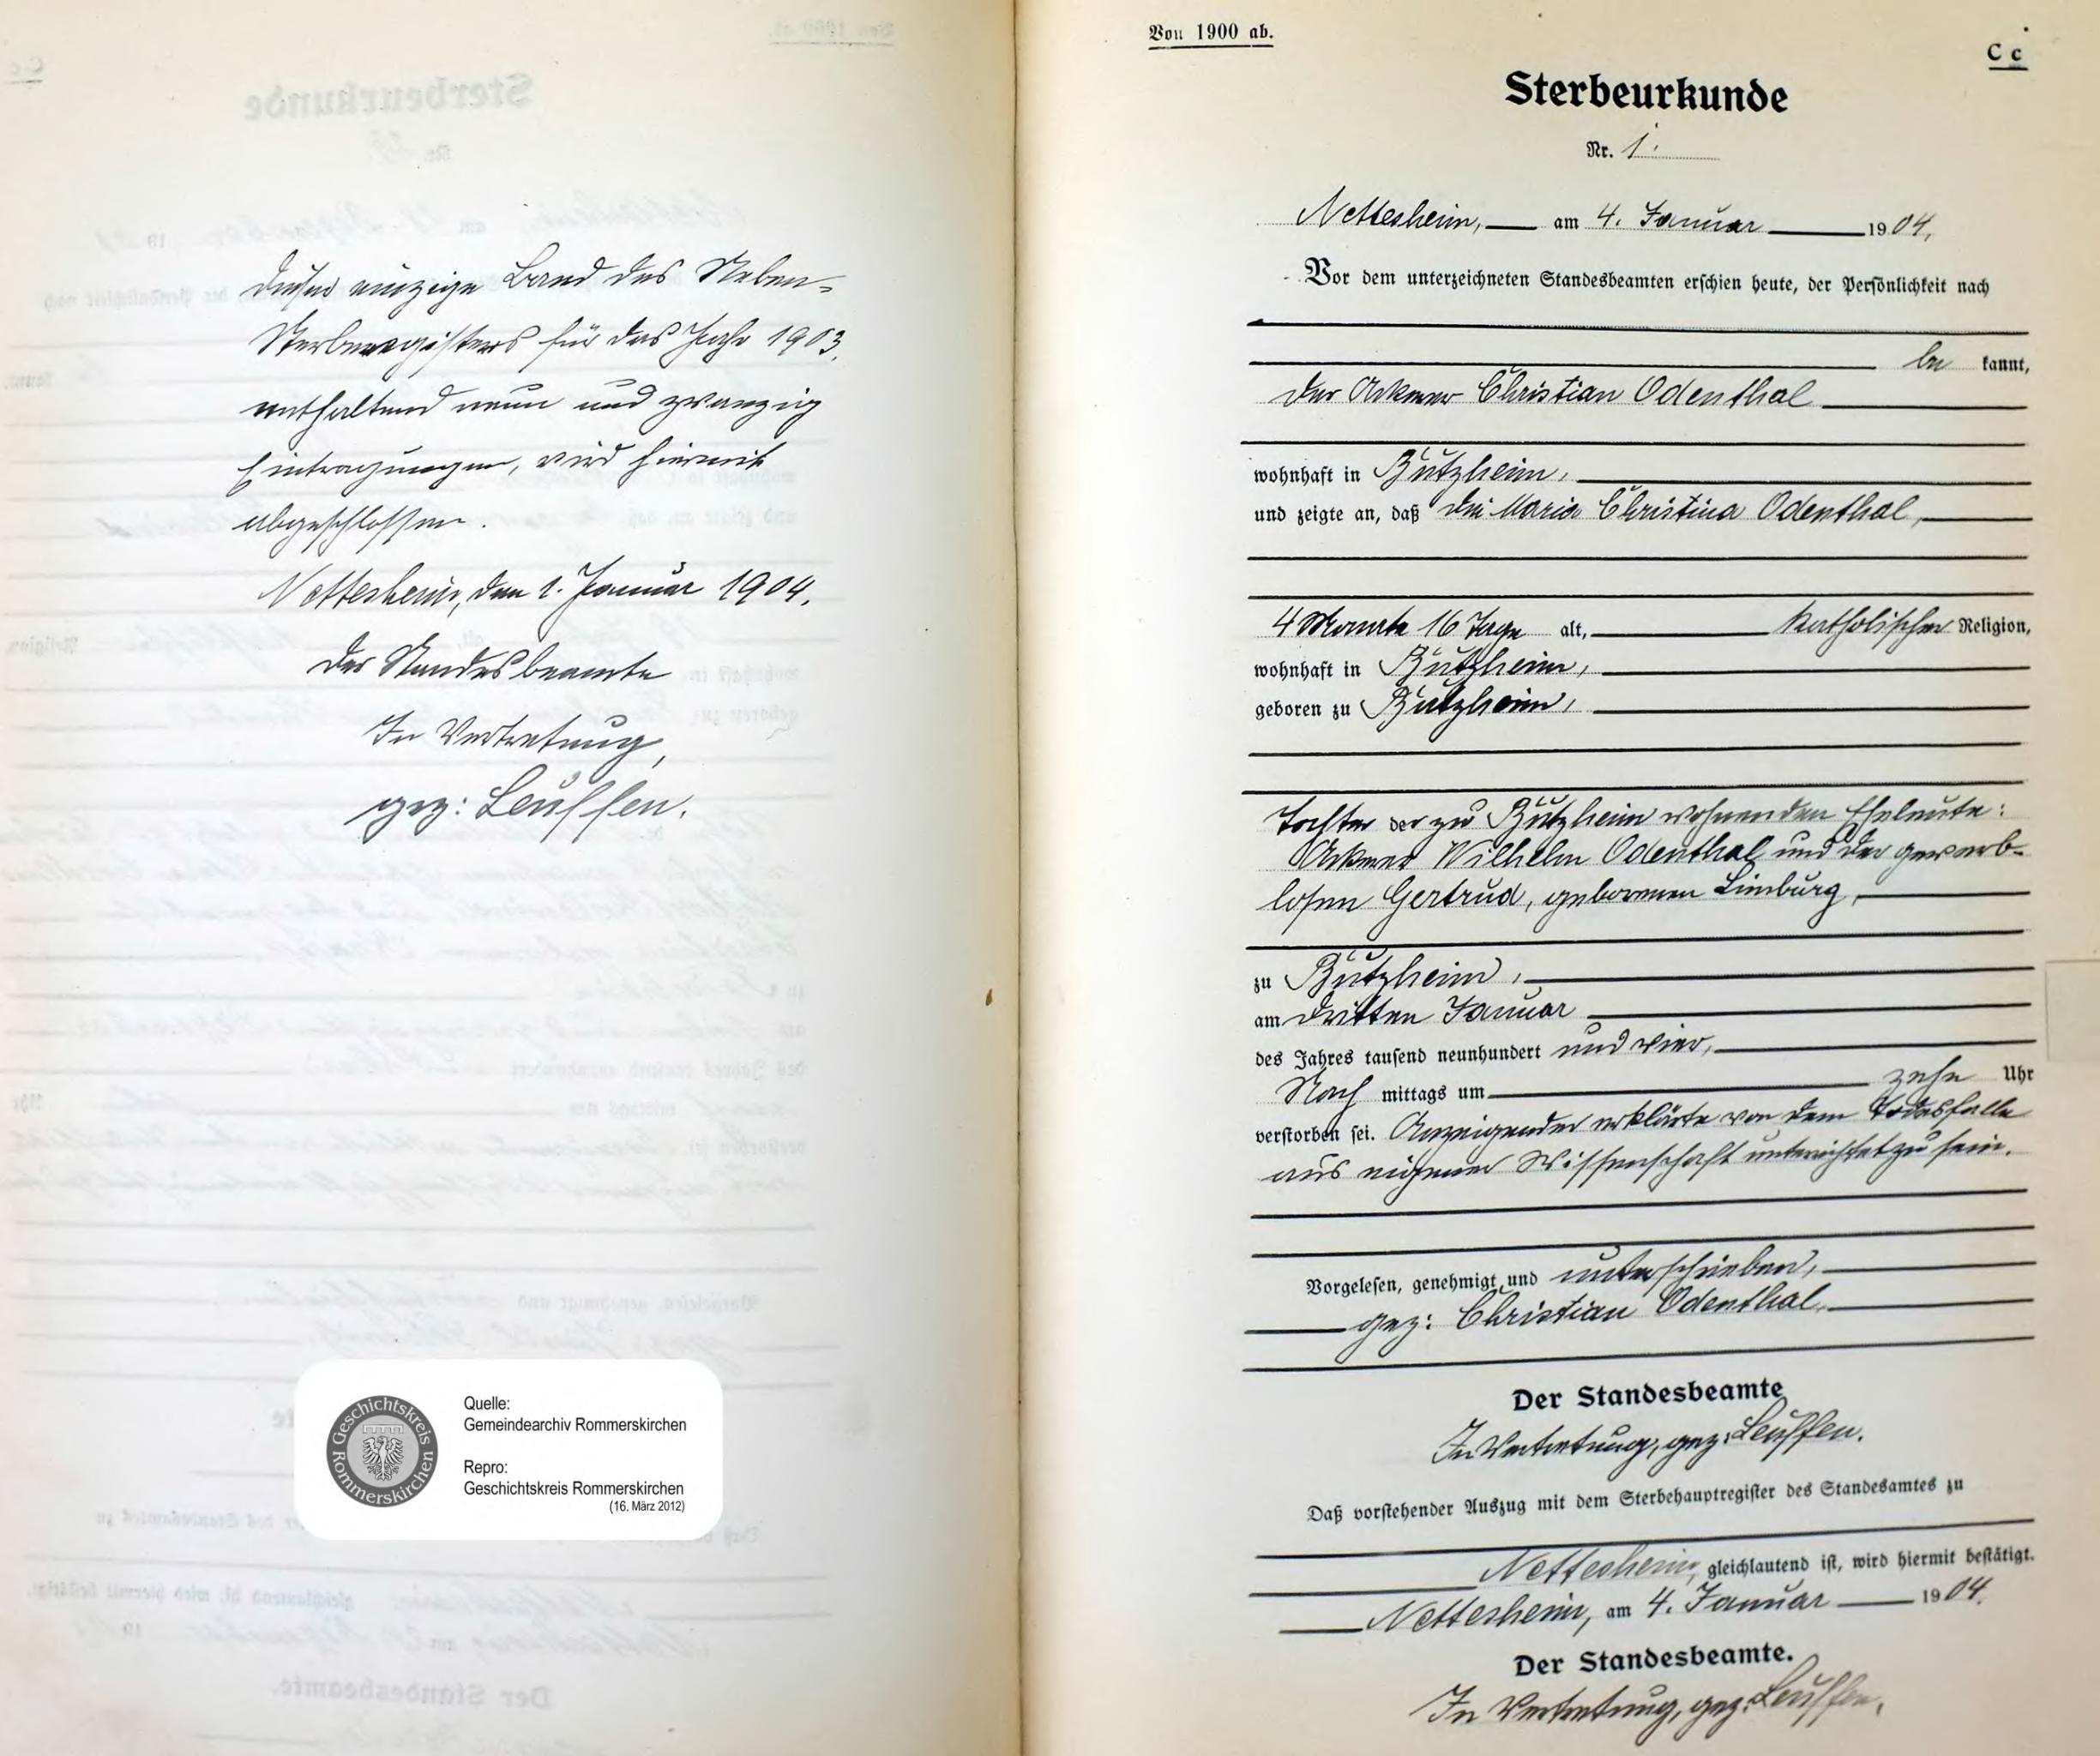 Dieser einzige Band des Neben-
Sterberegisters für das Jahr 1903,
enthaltend neun und zwanzig
Eintragungen, wird hiermit
abgeschlossen.
Nettesheim, den 1. Januar 1904.
Der Standesbeamte
In Vertretung,
gez: Leuffen.
Geschichtskreis Rommerskirchen
Quelle:
Gemeindearchiv Rommerskirchen
Repro:
Geschichtskreis Rommerskirchen
(16. März 2012)
Von 1900 ab.
C c
Sterbeurkunde
Nr. 1.
Nettesheim, am 4. Januar 1904.
Vor dem unterzeichneten Standesbeamten erschien heute, der Persönlichkeit nach
be kannt,
der Ackerer Christian Odenthal
wohnhaft in Butzheim,
und zeigte an, daß die Maria Christina Odenthal,
4 Monate 16 Tage alt, katholischer Religion,
wohnhaft in Butzheim,
geboren zu Butzheim,
Tochter der zu Butzheim wohnenden Eheleute:
Ackerer Wilhelm Odenthal und der gewerb-
losen Gertrud, geborenen Limburg,
zu Butzheim,
am dritten Januar
des Jahres tausend neunhundert und vier,
Nach mittags um zehn Uhr
verstorben sei. Anzeigender erklärte von dem Todesfalle
aus eigener Wissenschaft unterrichtet zu sein.
Vorgelesen, genehmigt und unterschrieben,
gez: Christian Odenthal.
Der Standesbeamte
In Vertretung, gez: Leuffen.
Daß vorstehender Auszug mit dem Sterbehauptregister des Standesamtes zu
Nettesheim, gleichlautend ist, wird hiermit bestätigt.
Nettesheim, am 4. Januar 1904.
Der Standesbeamte.
In Vertretung, gez: Leuffen.